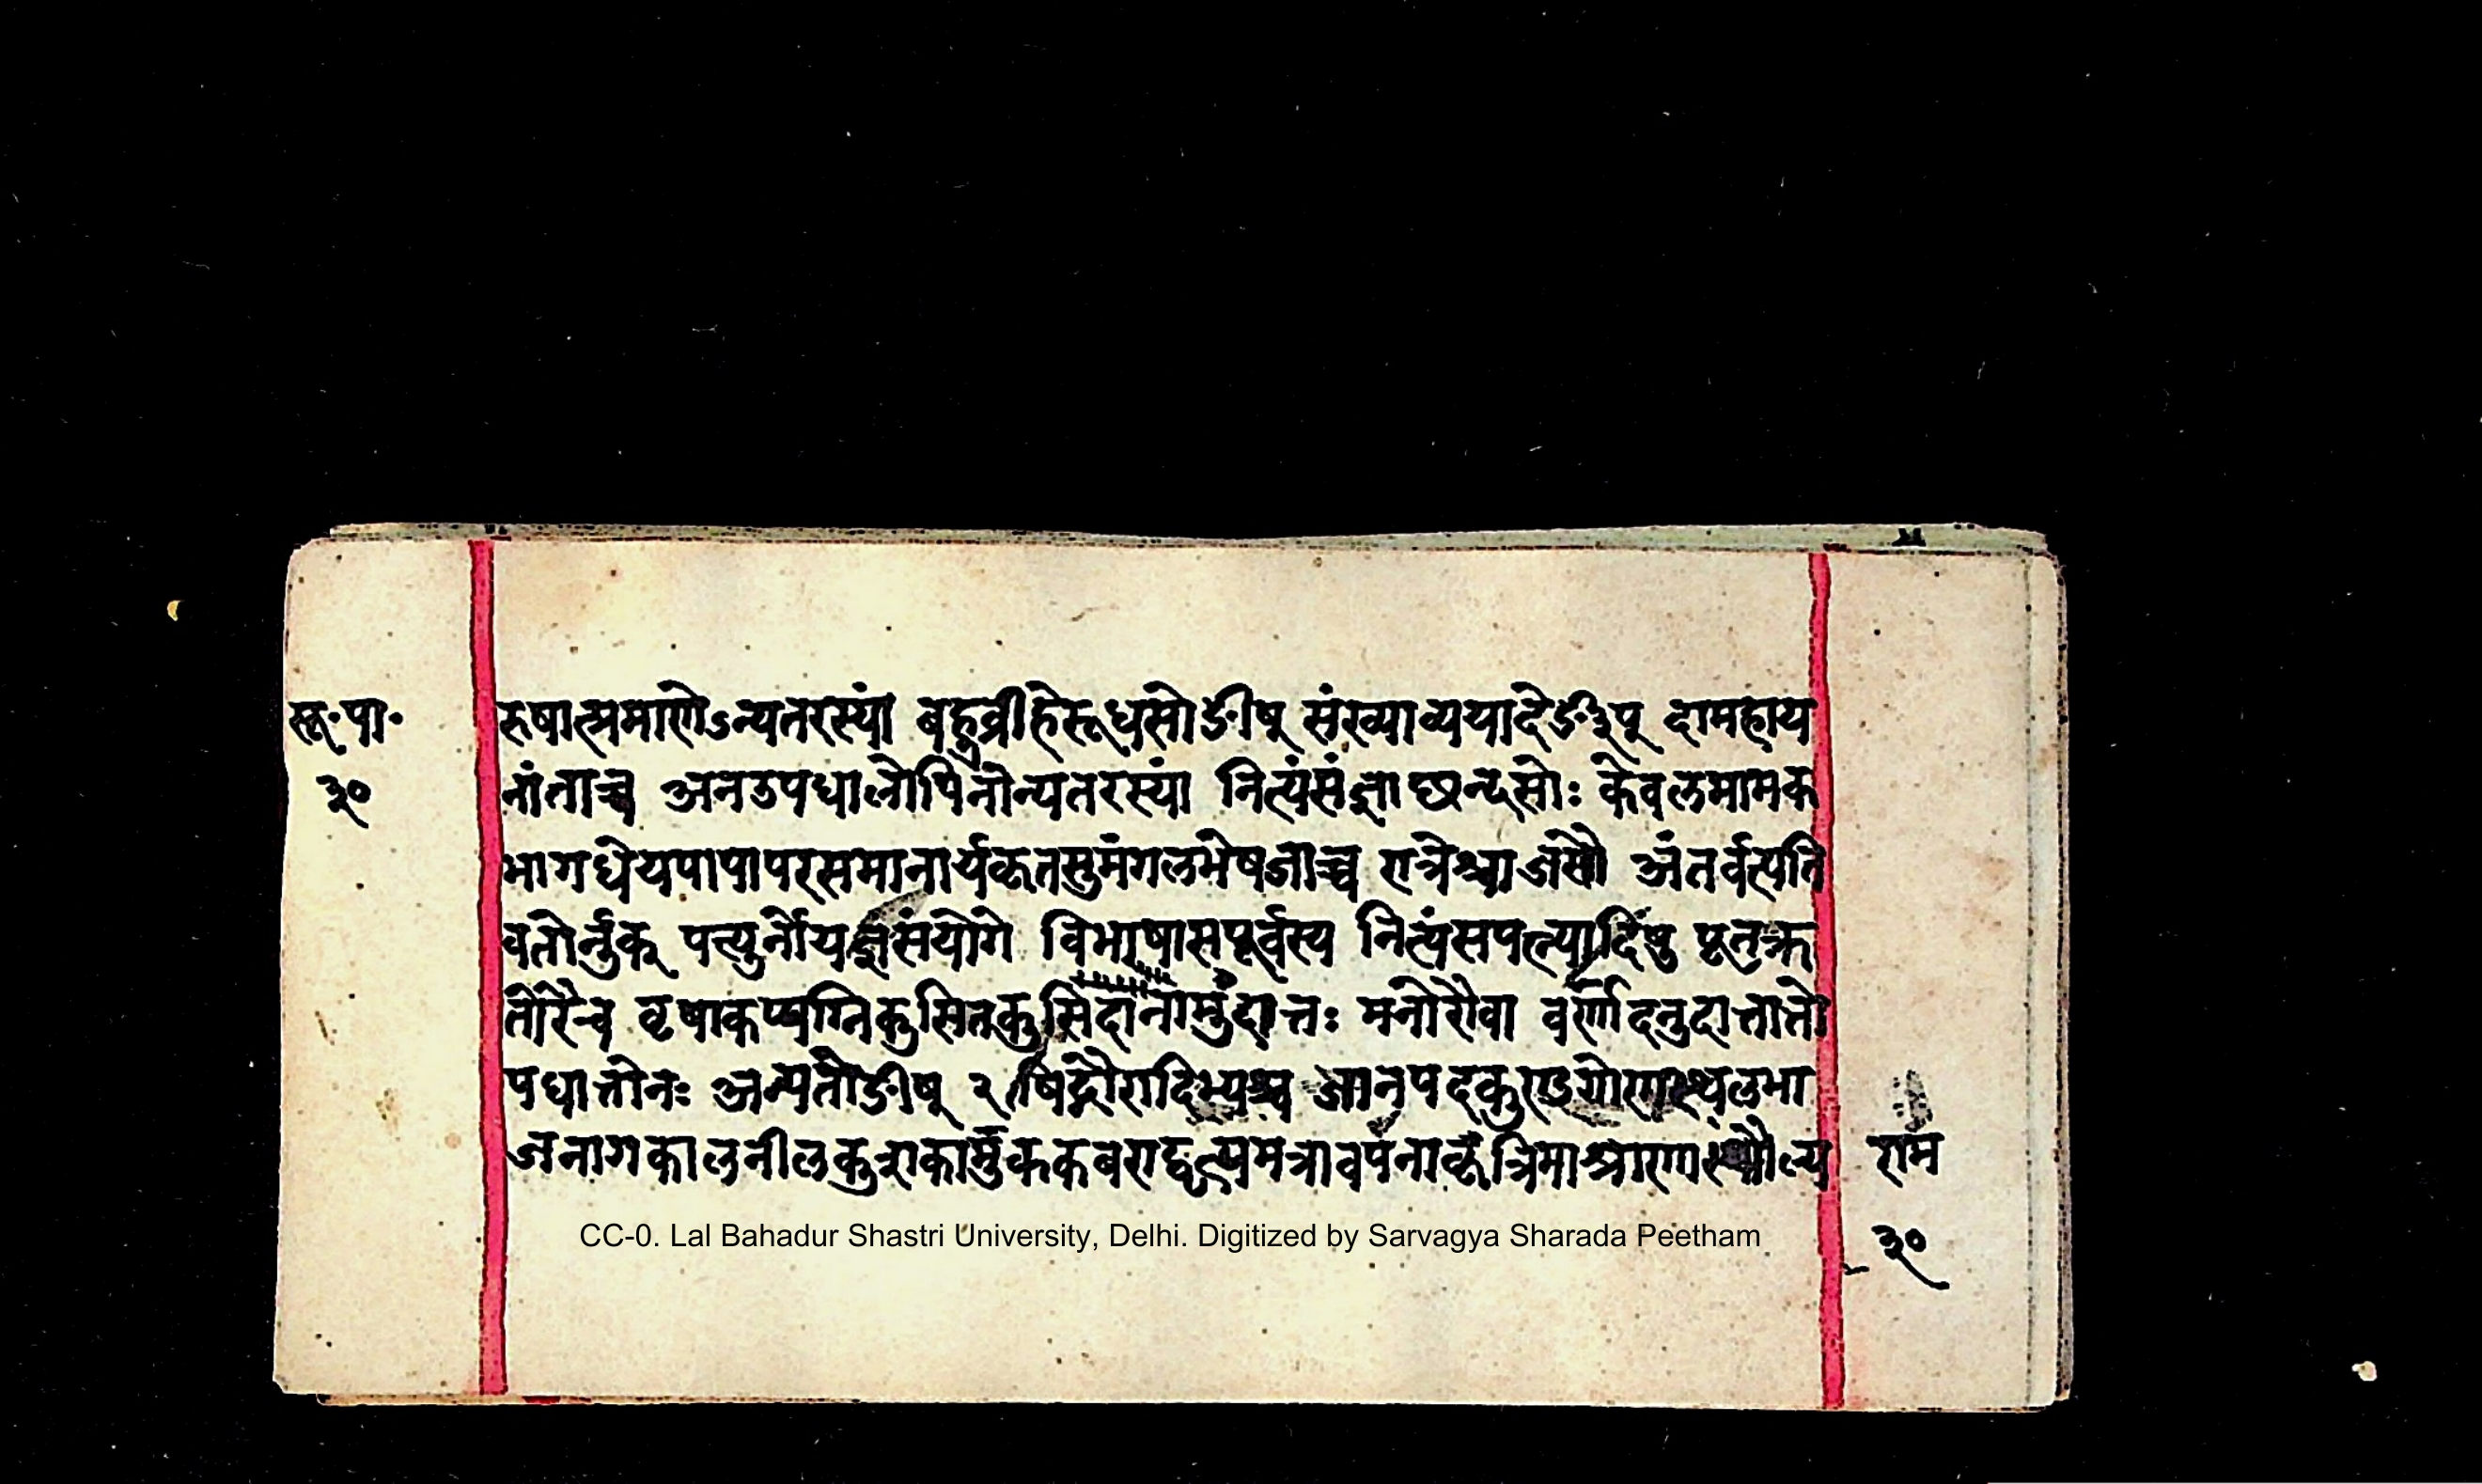 सू॰पा॰
३०
रुषात्प्रमाणेऽन्यतरस्यां बहुव्रीहेरूधसोङीष् संख्याव्ययादेर्ङीप् दामहाय
नांताच्च अनउपधालोपिनोन्यतरस्यां नित्यंसंज्ञाछन्दसोः केवलमामक
भागधेयपापापरसमानार्यकृतसुमंगलभेषजाच्च रात्रेश्चाजसौ अंतर्वत्पति
वतोर्नुक् पत्युर्नोयज्ञसंयोगे विभाषासपूर्वस्य नित्यंसपत्न्यादिषु पूतक्र
तोरैच वृषाकप्यग्निकुसितकुसिदानामुदात्तः मनोरौवा वर्णादनुदात्तात्तो
पधात्तोनः अन्यतोङीष् २ षिद्गौरादिभ्यश्च जानपदकुण्डगोणस्थलभा
जनागकालनीलकुशकामुककबराद्वृत्यमत्रावपनाकृत्रिमाश्राणास्थौल्य
राम
३०
CC-0. Lal Bahadur Shastri University, Delhi. Digitized by Sarvagya Sharada Peetham